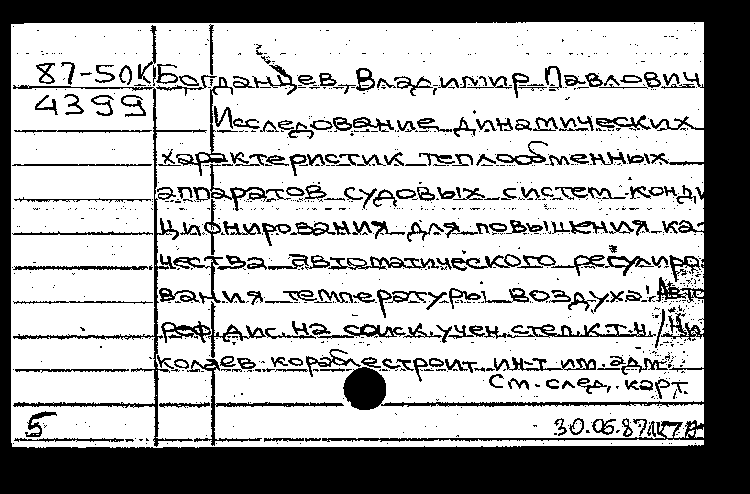 87-50К Богданцев, Владимир Павлович
4399 Исследование динамических
характеристик теплообменных
аппаратов судовых систем конди
ционирования для повышения ка
чества автоматического регулиро
вания температуры воздуха: Авто
реф. дис. на соиск. учен. степ. к.т.н. / Ни
колаев. кораблестроит. ин-т им. адм.
См. след. карт.
5 30.06.87